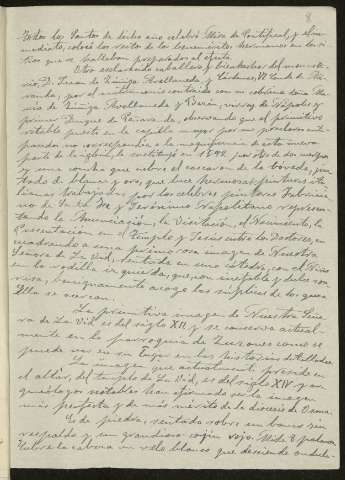 Todos los Santos de dicho año celebró Misa de Pontifical, y el in-
mediato, colocó los restos de los beneméritos hermanos en los ni-
chos que se hallaban preparados al efecto.
Otro esclarecido caballero y bienhechor del monaste-
rio, D. Juan de Zúñiga Avellaneda y Cárdenas, VI Conde de Mi-
randa, por el matrimonio contraído con su sobrina doña Ma-
ría de Zúñiga Avellaneda y Bazán, virrey de Nápoles y
primer Duque de Peñaranda, observando que el primitivo
retablo puesto en la capilla mayor por sus preclaros ante-
pasados no correspondía a la magnificencia de esta nueva
parte de la iglesia, lo sustituyó en 1592 por otro de dos cuerpos
y una concha que cubre el cascarón de la bóveda, pin-
tado de blanco y oro, que luce hermosas pinturas ita-
lianas trabajadas por los célebres pintores Fabricia-
no de Santa Fe y Jerónimo Napolitano represen-
tando la Anunciación, la Visitación, el Nacimiento, la
Presentación en el Templo y Jesús entre los Doctores, en-
cuadrando a una primorosa imagen de Nuestra
Señora de La Vid, sentada en una cátedra, con el Niño
en la rodilla izquierda, que, con inefable y dulce son-
risa, benignamente acoge las súplicas de los que a
Ella se acercan.
La primitiva imagen de Nuestra Seño-
ra de La Vid es del siglo XII y se conserva actual-
mente en la parroquia de Zuzones como se
puede ver en su lugar en las historias de
La imagen que actualmente preside en
el altar, del templo de La Vid, es del siglo XIV y ar-
queólogos notables han afirmado ser la imagen
más perfecta y de más mérito de la diócesis de Osma.
Es de piedra, sentada sobre un banco sin
respaldo y un grandioso cojín rojo. Mide 8 palmos
Cubre la cabeza un velo blanco que desciende ondula-